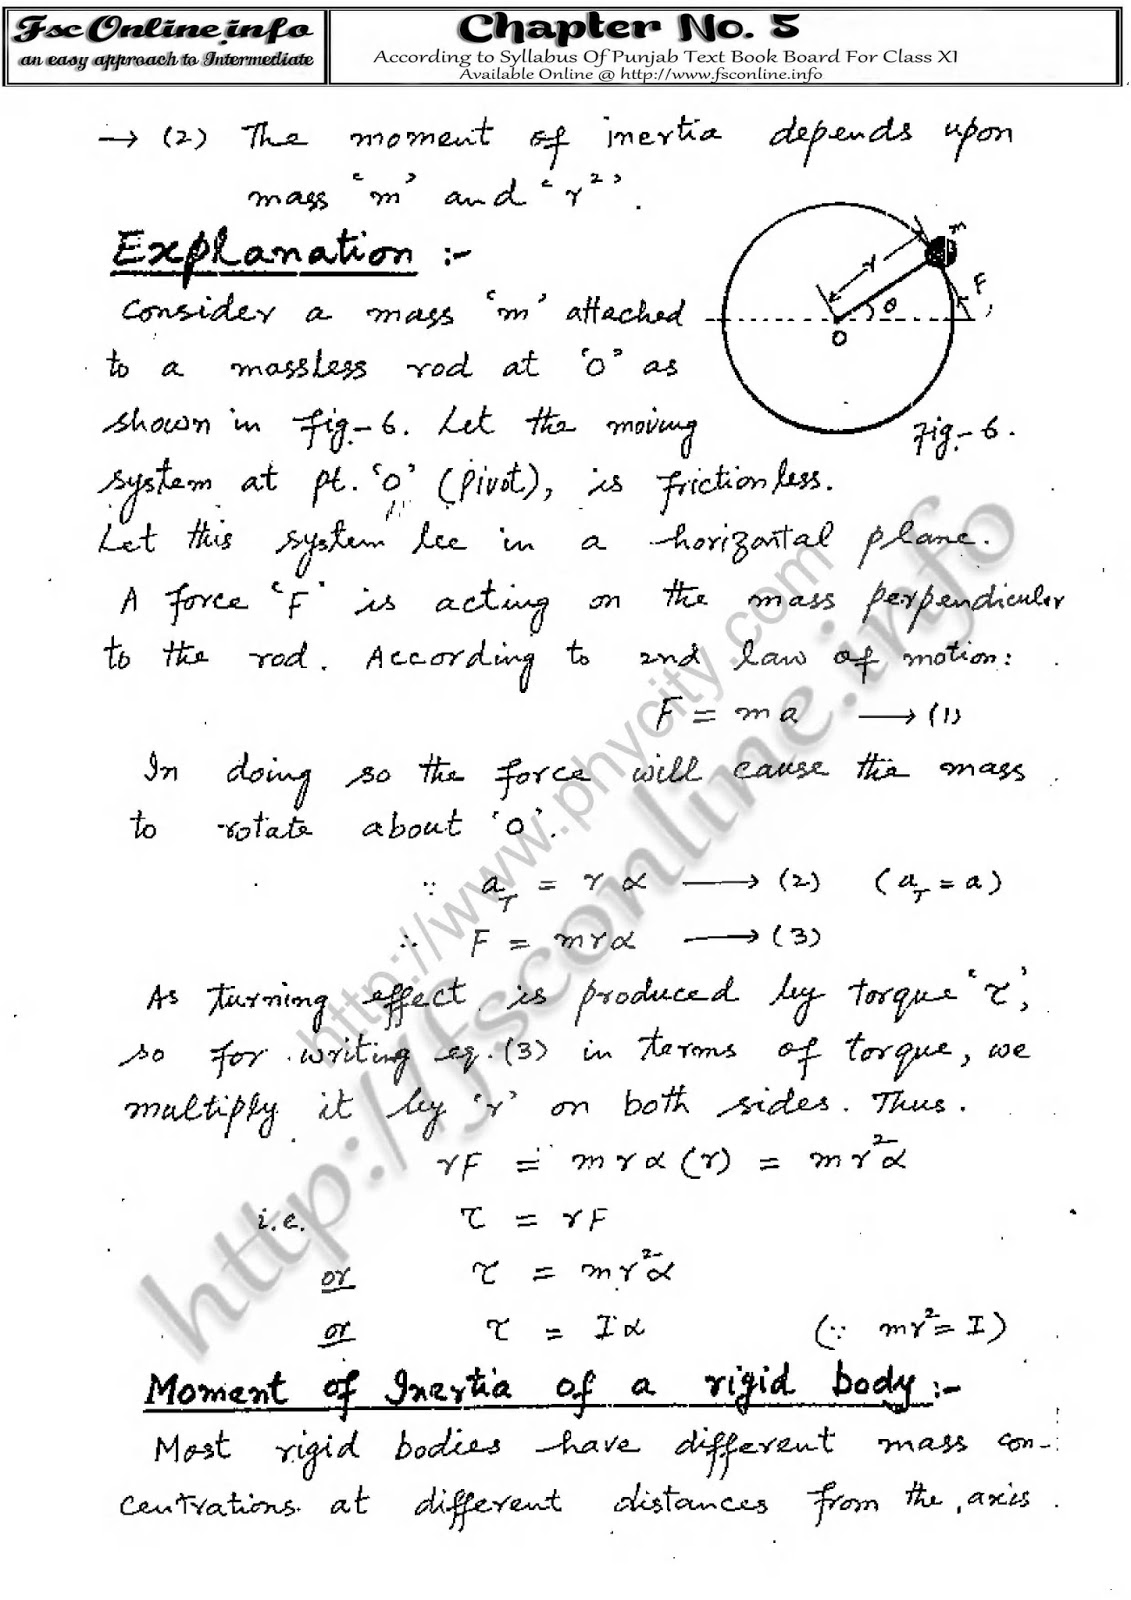 Fsc Online.info
an easy approach to Intermediate
Chapter No. 5
According to Syllabus Of Punjab Text Book Board For Class XI
Available Online @ http://www.fsconline.info
→ (2) The moment of inertia depends upon
mass 'm' and 'r²'.
Explanation :-
Consider a mass 'm' attached
to a massless rod at 'O' as
shown in fig-6. Let the moving
system at pt. 'O' (pivot), is frictionless.
m
r
F
θ
O
Fig-6.
Let this system be in a horizontal plane.
A force 'F' is acting on the mass perpendicular
to the rod. According to 2nd law of motion:
F = ma → (1)
In doing so the force will cause the mass
to rotate about 'O'.
∵ a_T = rα → (2) (a_T = a)
∴ F = mrα → (3)
As turning effect is produced by torque 'τ',
so for writing eq. (3) in terms of torque, we
multiply it by 'r' on both sides. Thus.
rF = mrα(r) = mr²α
i.e. τ = rF
or τ = mr²α
or τ = Iα (∵ mr² = I)
Moment of Inertia of a rigid body :-
Most rigid bodies have different mass con-
centrations at different distances from the axis
http://www.phycity.com
http://fsconline.info